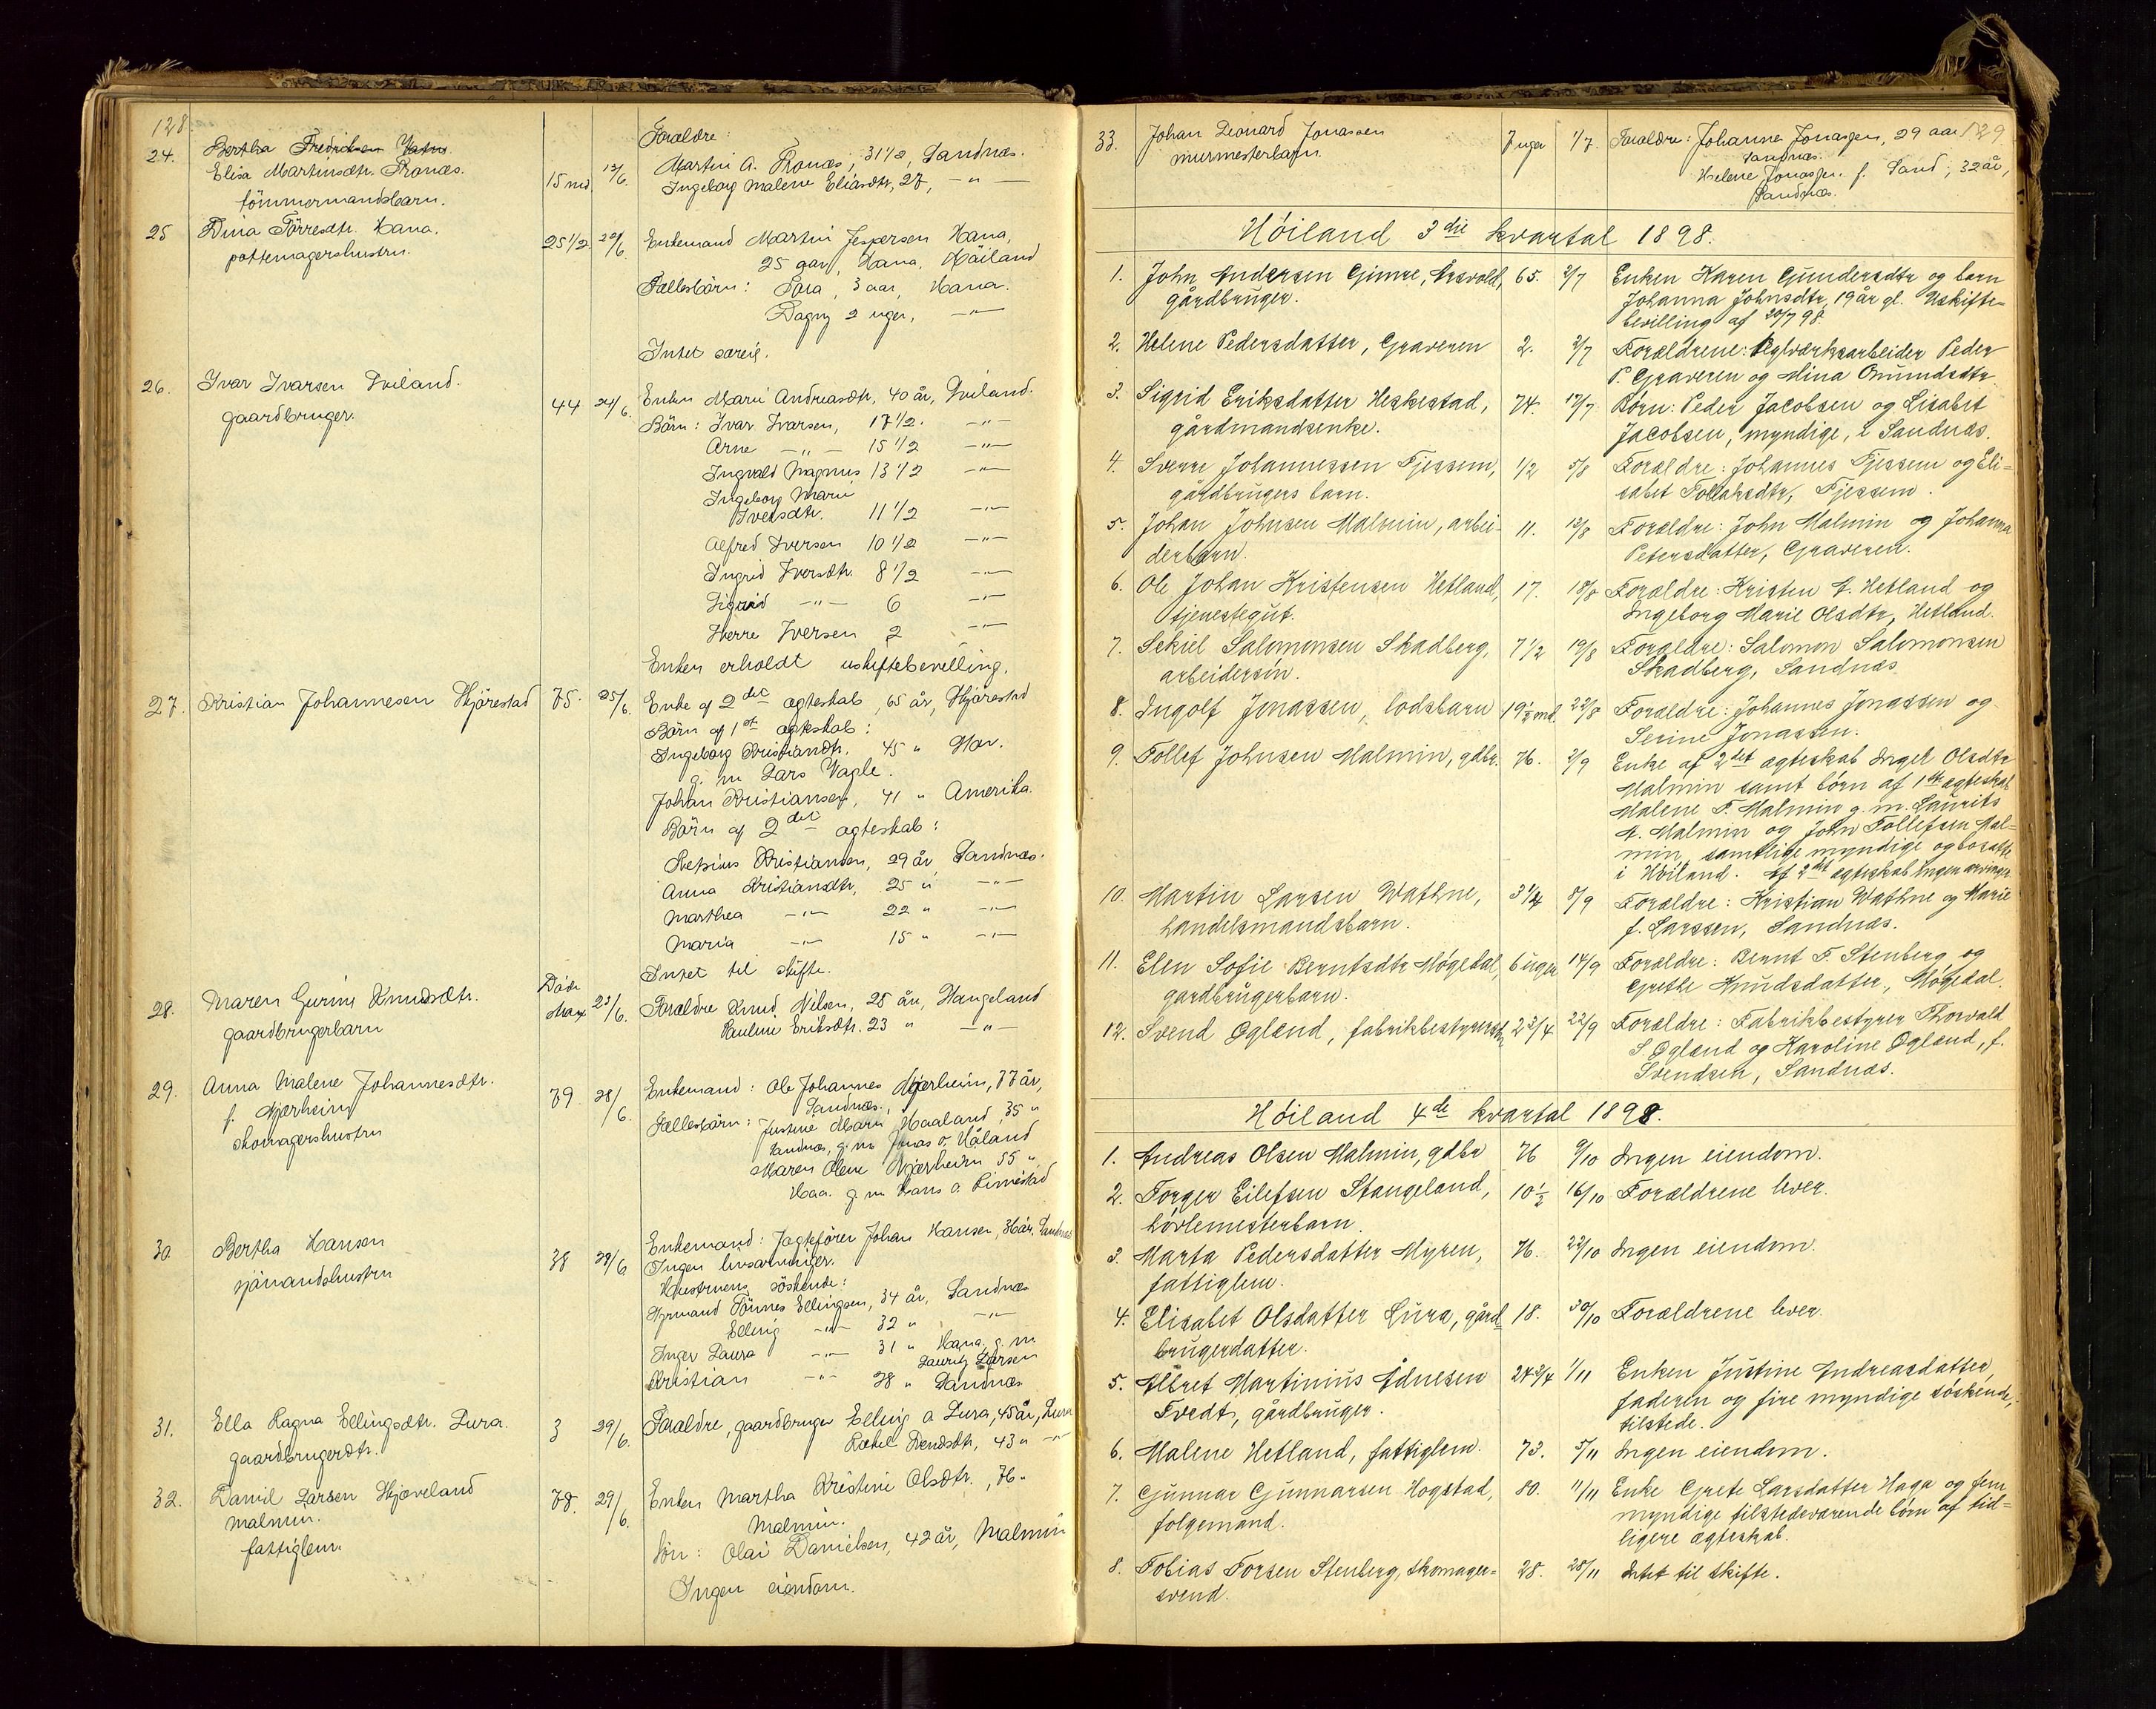 128
24. Bertha Fredriksen Vatne
Elisa Martinsdtr. Tronæs.
tømmermandsbarn.
15 md. 13/6.
Forældre:
Martin A. Tronæs, 31 1/2, Sandnæs.
Ingeborg Malene Eliasdtr, 27, —"—
25 Dina Tørresdtr. Hana.
pottemagerhustru.
25 1/2 22/6.
Enkemand Martin Jespersen Hana,
25 gar, Hana, Høiland
Fællesbørn: Tora, 3 aar, Hana.
Dagny 2 uger, —"—
Intet særeie.
26. Ivar Ivarsen Sviland.
gaardbruger.
44 24/6.
Enken Marie Andreasdtr, 40 år, Sviland.
Børn: Ivar Ivarsen, 17 1/2. —"—
Arne —"— 15 1/2 —"—
Ingvald Magnus 13 1/2 —"—
Ingeborg Marie
Iversdtr. 11 1/2 —"—
Alfred Iversen 10 1/2 —"—
Ingrid Iversdtr. 8 1/2 —"—
Sigrid —"— 6 —"—
Sverre Iversen 2 —"—
Enken erholdt uskiftebevilling.
27. Kristian Johannesen Hjørestad 75. 25/6.
Enke af 2det ægteskab, 65 år, Hjørestad
Børn af 1st ægteskab:
Ingeborg Kristiansdtr. 45 "
g. m Lars Vagle.
Johan Kristiansen, 41 " Amerika.
Børn af 2det ægteskab:
Kristiansen, 29 år Sandnæs.
Anna Kristiansdtr, 25 " —"—
Marthea —"— 22 " —"—
Maria —"— 15 " —"—
Intet til skifte.
28. Maren Gurine Knudsdtr.
gaardbrugerbarn
23/6.
Forældre Knud Nilsen, 28 år, Stangeland
Pauline Eriksdtr. 23 " —"—
29. Anna Malene Johannesdtr.
f. Njærheim
skomagerhustru
79 28/6.
Enkemand: Ole Johannes Njærheim, 77 år,
Sandnæs.
Fællesbørn: Justine Marie Haaland, 35 "
Sandnæs, g. m Jonas O. Håland
Maren Olene Njærheim 55 "
Haa. g. m Hans O.
30. Bertha Hansen
sjømandshustru
38 28/6.
Enkemand: Jagtefører Johan Hansen, 36 år, Sandnæs
Ingen livsarvinger.
Hustruens søskende:
Styrmand Tønnes Ellingsen, 34 år, Sandnæs
Elling —"— 32 " —"—
Inger Laura —"— 31 " Hana, g. m
Lauritz Larsen
Kristian —"— 28 " Sandnæs
31. Ella Ragna Ellingsdtr. Lura.
gaardbrugerdtr.
3 29/6.
Forældre, gaardbruger Elling A Lura, 45 år, Lura
Rakel Svendsdtr, 43 " —"—
32. Daniel Larsen Skjæveland
Malmin.
fattiglem.
78. 29/6.
Enken Martha Kristine Olsdtr., 76 "
Malmin.
Søn: Olai Danielsen, 42 år, Malmin
Ingen eiendom.
129
33. Johan Leonard Jonassen
murmesterbarn.
7 uger 1/7.
Forældre: Johannes Jonassen, 29 aar
Sandnæs.
Helene Jonassen f. Sand, 32 år,
Sandnæs.
Høiland 3die kvartal 1898.
1. John Andersen Gimre, Arsvold,
gårdbruger.
65. 2/7
Enken Karen Gundersdtr og barn
Johanna Johnsdtr, 19 år gl. Uskifte-
bevilling af 20/7 98.
2. Helene Pedersdatter, Graveren 2. 2/7
Forældrene: Teglværksarbeider Peder
P. Graveren og Mina Omundsdtr.
3. Sigrid Eriksdatter Heskestad,
gårdmandsenke.
74. 17/7
Børn: Peder Jacobsen og Lisabet
Jacobsen, myndige, i Sandnæs.
4. Sverre Johannessen Tjessem,
gårdbrugers barn.
1/2 5/8
Forældre: Johannes Tjessem og Eli-
sabet Tollaksdtr, Tjessem.
5. Johan Johnsen Malmin, arbei-
derbarn.
11. 13/8
Forældre: John Malmin og Johanna
Petersdatter, Graveren.
6. Ole Johan Kristensen Hetland,
tjenestegut.
17. 18/8
Forældre: Kristen A. Hetland og
Ingeborg Marie Olsdtr, Hetland.
7. Sekiel Salomonsen Skadberg,
arbeidersøn.
7 1/2 19/8
Forældre: Salomon Salomonsen
Skadberg, Sandnæs
8. Ingolf Jonassen, lodsbarn 19 1/2 md. 22/8
Forældre: Johannes Jonassen og
Serine Jonassen.
9. Tollef Johnsen Malmin, gdbr. 76. 2/9
Enke af 2det ægteskab Inger Olsdtr
Malmin samt børn af 1ste ægteskab
Malene T. Malmin g. m. Laurits
A. Malmin og John Tollefsen Mal-
min, samtlige myndige og bosatte
i Høiland. Af 2det ægteskab ingen arvinger.
10. Martin Larsen Wathne,
handelsmandsbarn.
3 1/4 8/9
Forældre: Kristian Wathne og Marie
f. Larssen, Sandnæs.
11. Elen Sofie Berntsdtr Møgedal,
gardbrugerbarn.
6 uger 14/9
Forældre: Bernt T. Stenberg og
Grethe Knudsdatter, Møgedal.
12. Svend Øglænd, fabrikbestyrersøn 2 3/4 22/9
Forældre: Fabrikbestyrer Thorvald
S. Øglænd og Karoline Øglænd, f.
Svendsen, Sandnæs.
Høiland 4de kvartal 1898.
1. Andreas Olsen Malmin, gdbr 76 9/10 Ingen eiendom.
2. Torger Eilefsen Stangeland,
høvlemesterbarn.
10 1/2 16/10 Forældrene lever.
3. Marta Pedersdatter Myren,
fattiglem.
76. 22/10 Ingen eiendom.
4. Elisabet Olsdatter Lura, gård-
brugerdatter.
18. 30/10 Forældrene lever.
5. Albret Martinius Ådnesen
Tvedt, gårdbruger.
24 3/4 1/11
Enken Justine Andreasdatter,
faderen og fire myndige søskende,
tilstede.
6. Malene Hetland, fattiglem. 73. 5/11 Ingen eiendom.
7. Gunnar Gunnarsen Hogstad,
folgemand.
80. 11/11
Enke Grete Larsdatter Haga og fem
myndige tilstedeværende børn af tid-
ligere ægteskab.
8. Tobias Torsen Stenberg, skomager-
svend.
28. 28/11 Intet til skifte.